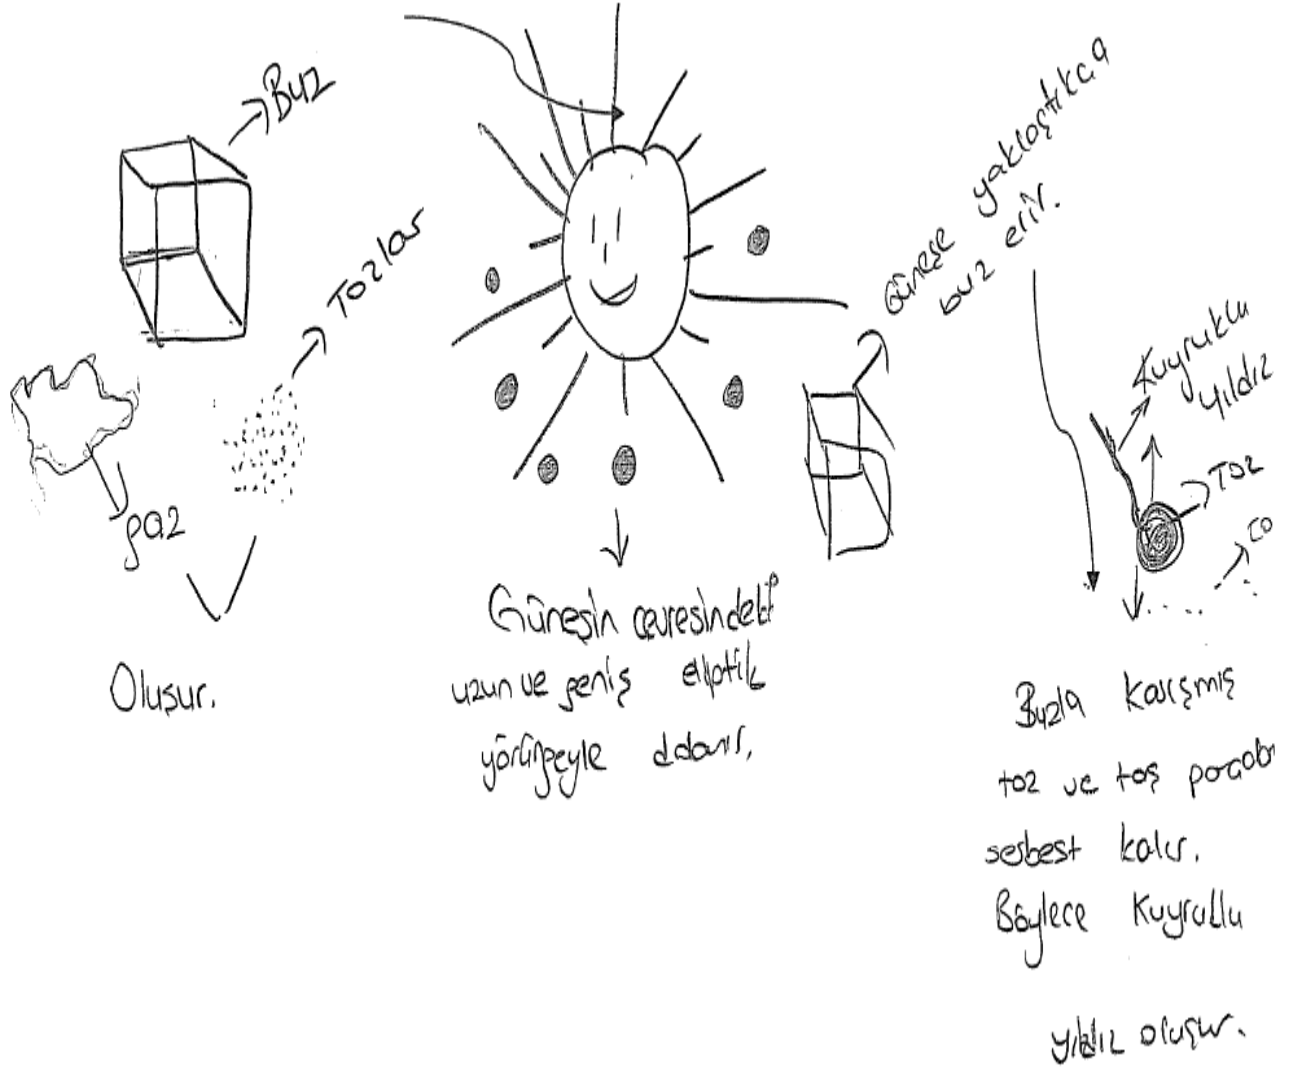 Buz
Tozlar
gaz
Oluşur.
Güneşin çevresindeki
uzun ve geniş eliptik
yörüngeyle dolanır.
Güneşe yaklaştıkça
buz erir.
Kuyruklu
yıldız
Toz
CO
Buzla karışmış
toz ve taş
serbest kalır.
Böylece Kuyruklu
yıldız oluşur.